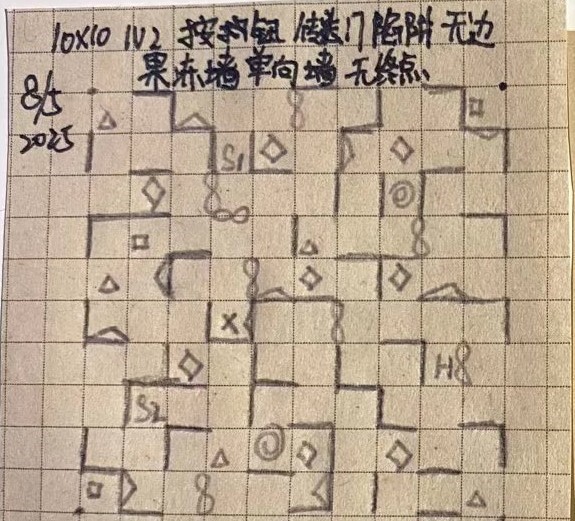 10×10 1V2 按按钮 传送门 陷阱 无边
果冻墙 单向墙 无终点
8/5
2025
S1
X
H
S2